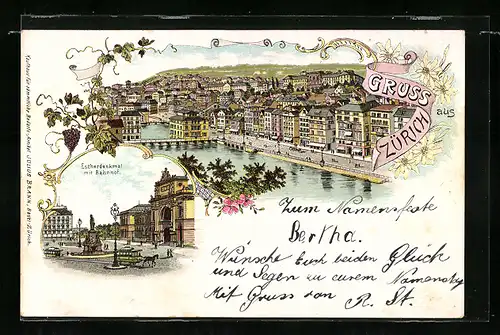 GRUSS
aus
ZÜRICH
Escherdenkmal
mit Bahnhof.
Zum Namensfeste
Bertha.
Wünsche Euch beiden Glück
und Segen zu eurem Namenstag
Mit Gruss von R. St.
JULIUS BRANN, Zürich.